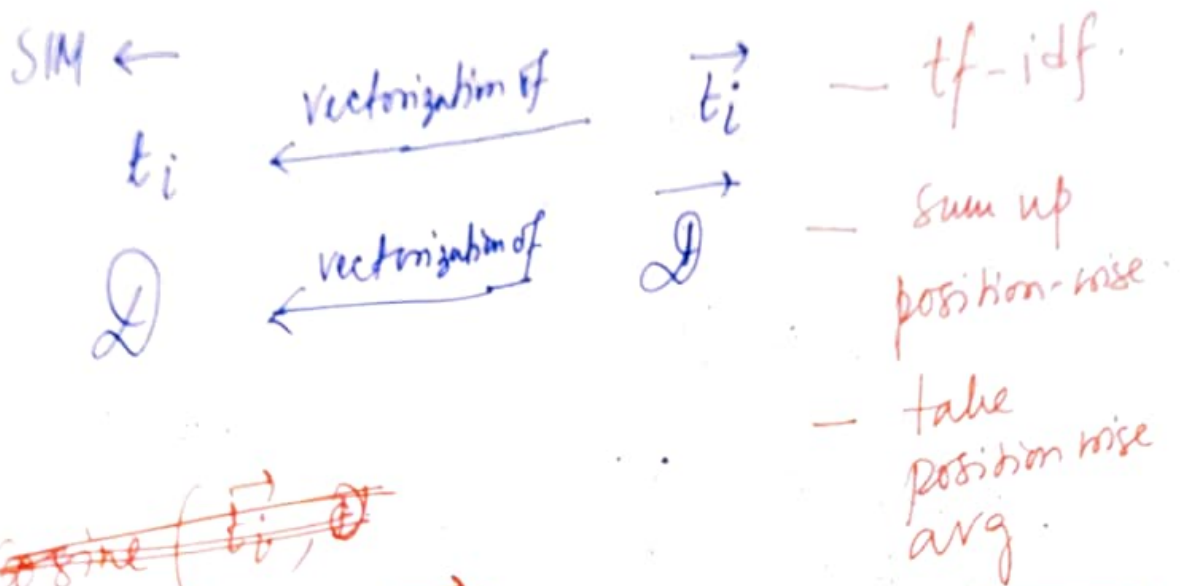 SIM ←
t_i ← vectorization of \vec{t_i} — tf-idf.
D ← vectorization of \vec{D} — sum up
position-wise.
— take
position wise
avg.
cosine (\vec{t_i},